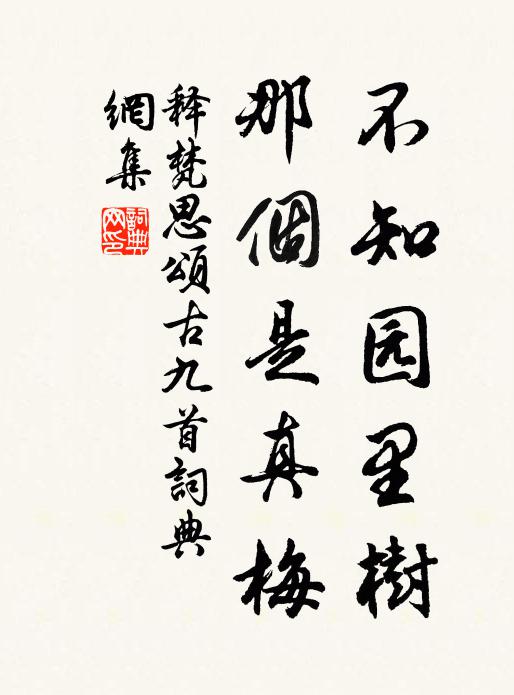 不知园里樹
那個是真梅
释梵思頌古九首詞典
網集
詞典網印